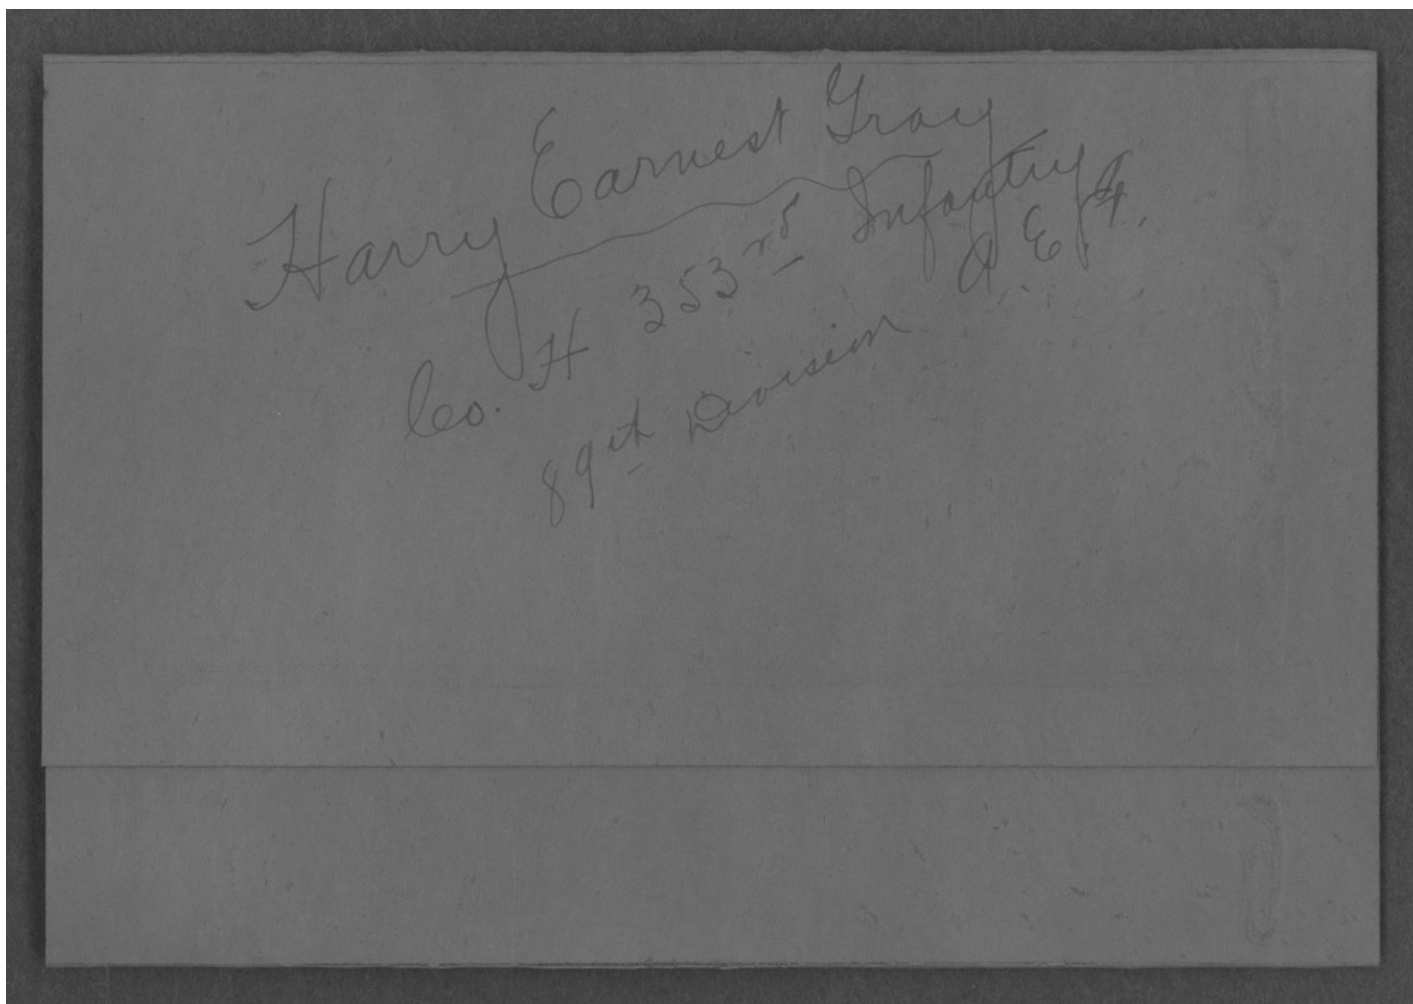 Harry Earnest Gray
Co. H 353rd Infantry
89th Division A.E.F.